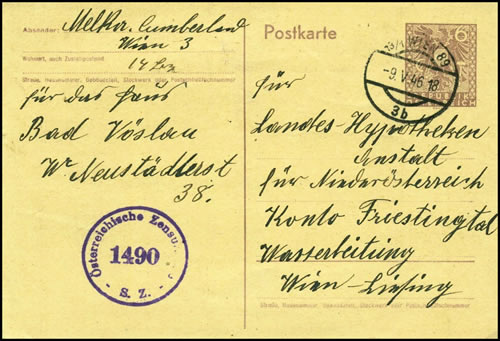 Absender: Melkr. Cumberland
Wien 3
Wohnort, auch Zustellpostamt
14
Straße, Hausnummer, Gebäudeteil, Stockwerk oder Postschließfachnummer
für das Haus
Bad Vöslau
Wr Neustädterst
38.
Österreichische Zensur
1490
- S. Z. -
Postkarte
6
REPUBLIK
ÖSTERREICH
WIEN 89
-9.V.46 18
3b
für
Landes-Hypotheken
anstalt
für Niederösterreich
Konto Friestingtal
Wasserleitung
Wien-Liesing
Straße, Hausnummer, Gebäudeteil, Stockwerk oder Postschließfachnummer